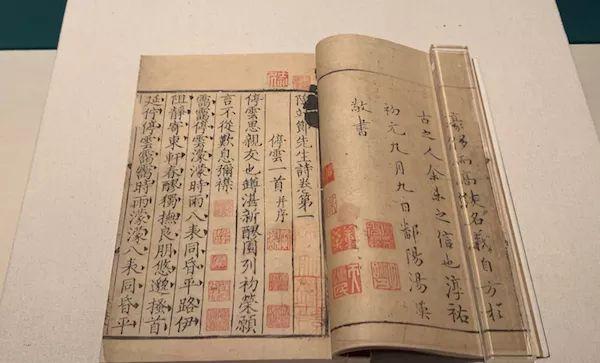 豪侈而高談名義自方於
古之人余未之信也淳祐
初元九月九日鄱陽湯漢
敬書
陶靖節先生詩卷第一
停雲一首并序
停雲思親友也罇湛新醪園列初榮願
言不從歎息彌襟
靄靄停雲濛濛時雨八表同昏平路伊
阻靜寄東軒春醪獨撫良朋悠邈搔首
延佇停雲靄靄時雨濛濛八表同昏平